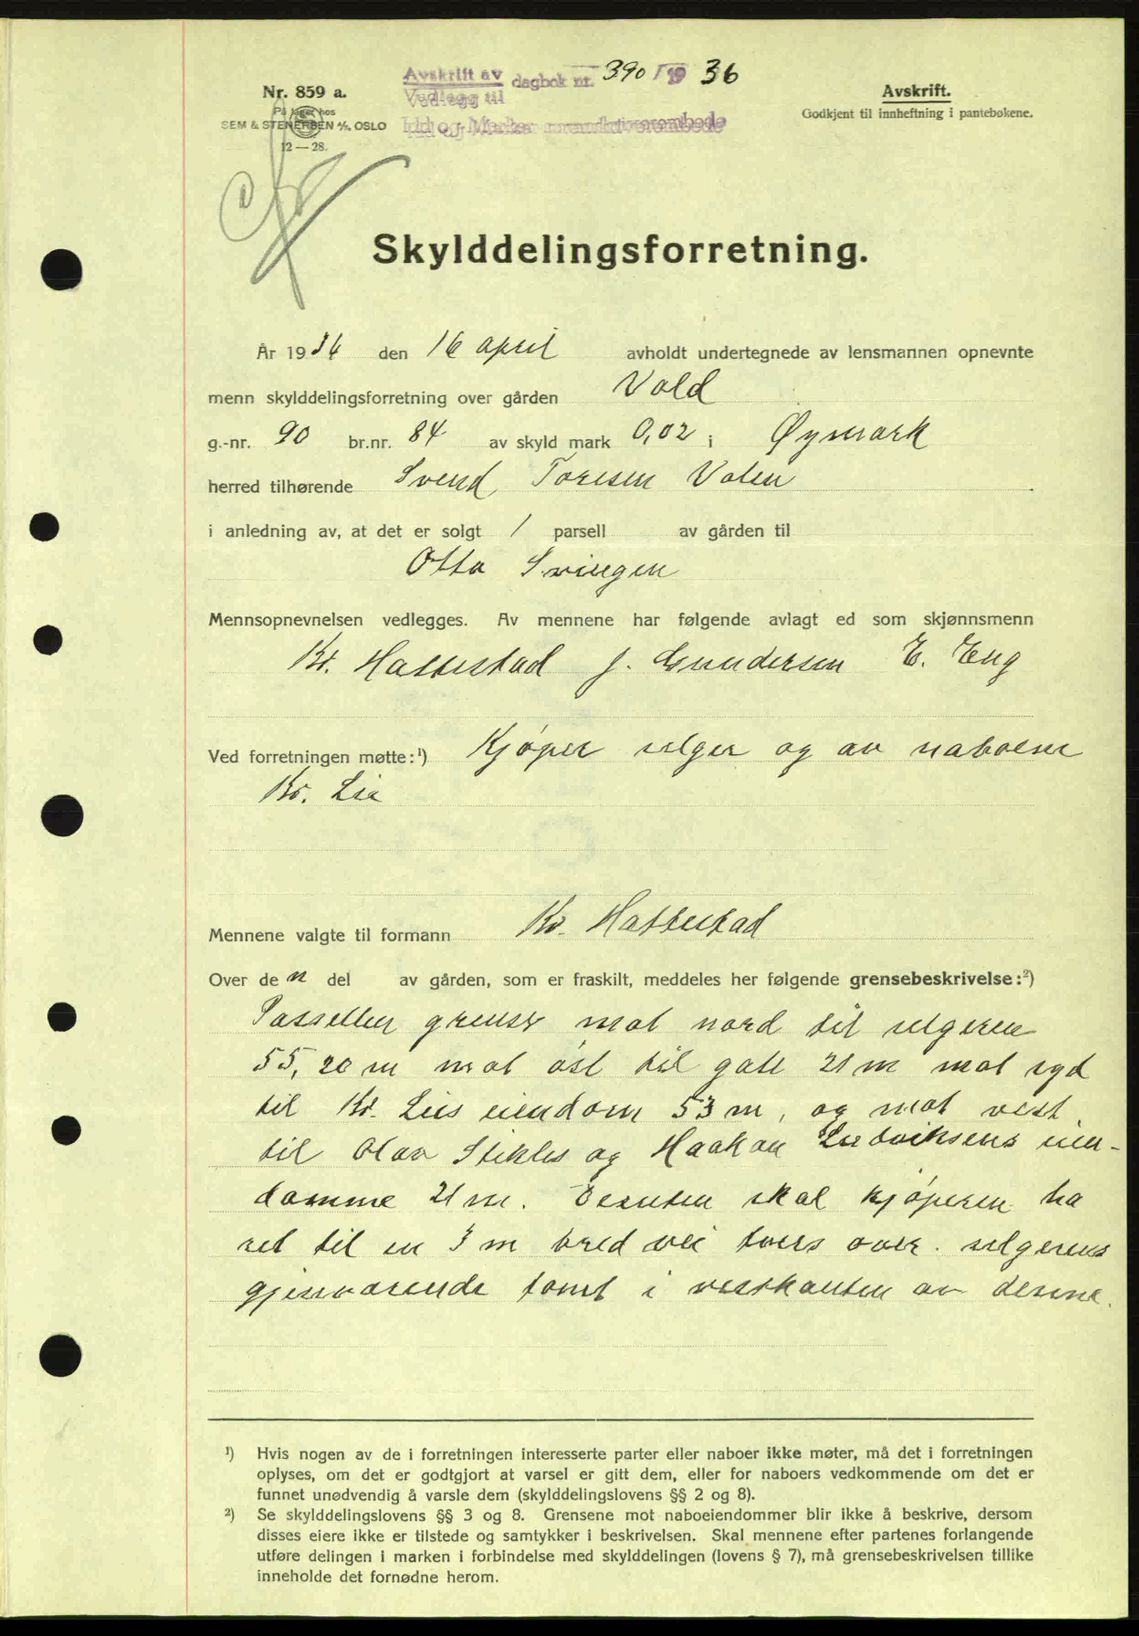 Avskrift av dagbok nr. 390 / 19 36
Vedlegg til
Idd og Marker sorenskriverembede
Nr. 859 a.
På lager hos
SEM & STENERSEN A/S. OSLO
12 — 28.
Avskrift.
Godkjent til innheftning i pantebøkene.
Skylddelingsforretning.
År 1936 den 16 april avholdt undertegnede av lensmannen opnevnte
menn skylddelingsforretning over gården Vold
g.-nr. 90 br.nr. 84 av skyld mark 0,02 i Øymark
herred tilhørende Svend Toresen Volen
i anledning av, at det er solgt 1 parsell av gården til
Otto Svingen
Mennsopnevnelsen vedlegges. Av mennene har følgende avlagt ed som skjønnsmenn
Kr. Hattestad J. Gundersen E. Eng
Ved forretningen møtte:¹) Kjøper selger og av naboene
Kr. Lie
Mennene valgte til formann Kr. Hattestad
Over den del av gården, som er fraskilt, meddeles her følgende grensebeskrivelse:²)
Parsellen grenser mot nord til selgeren
55,20 m mot øst til gate 21 m mot syd
til Kr. Lies eiendom 53 m, og mot vest
til Olav Stikles og Haakon Ludviksens eien-
domme 21 m. Desuten skal kjøperen ha
ret til en 3 m bred vei tvers over selgerens
gjenværende tomt i vestkanten av denne.
¹) Hvis nogen av de i forretningen interesserte parter eller naboer ikke møter, må det i forretningen
oplyses, om det er godtgjort at varsel er gitt dem, eller for naboers vedkommende om det er
funnet unødvendig å varsle dem (skylddelingslovens §§ 2 og 8).
²) Se skylddelingslovens §§ 3 og 8. Grensene mot naboeiendommer blir ikke å beskrive, dersom
disses eiere ikke er tilstede og samtykker i beskrivelsen. Skal mennene efter partenes forlangende
utføre delingen i marken i forbindelse med skylddelingen (lovens § 7), må grensebeskrivelsen tillike
inneholde det fornødne herom.